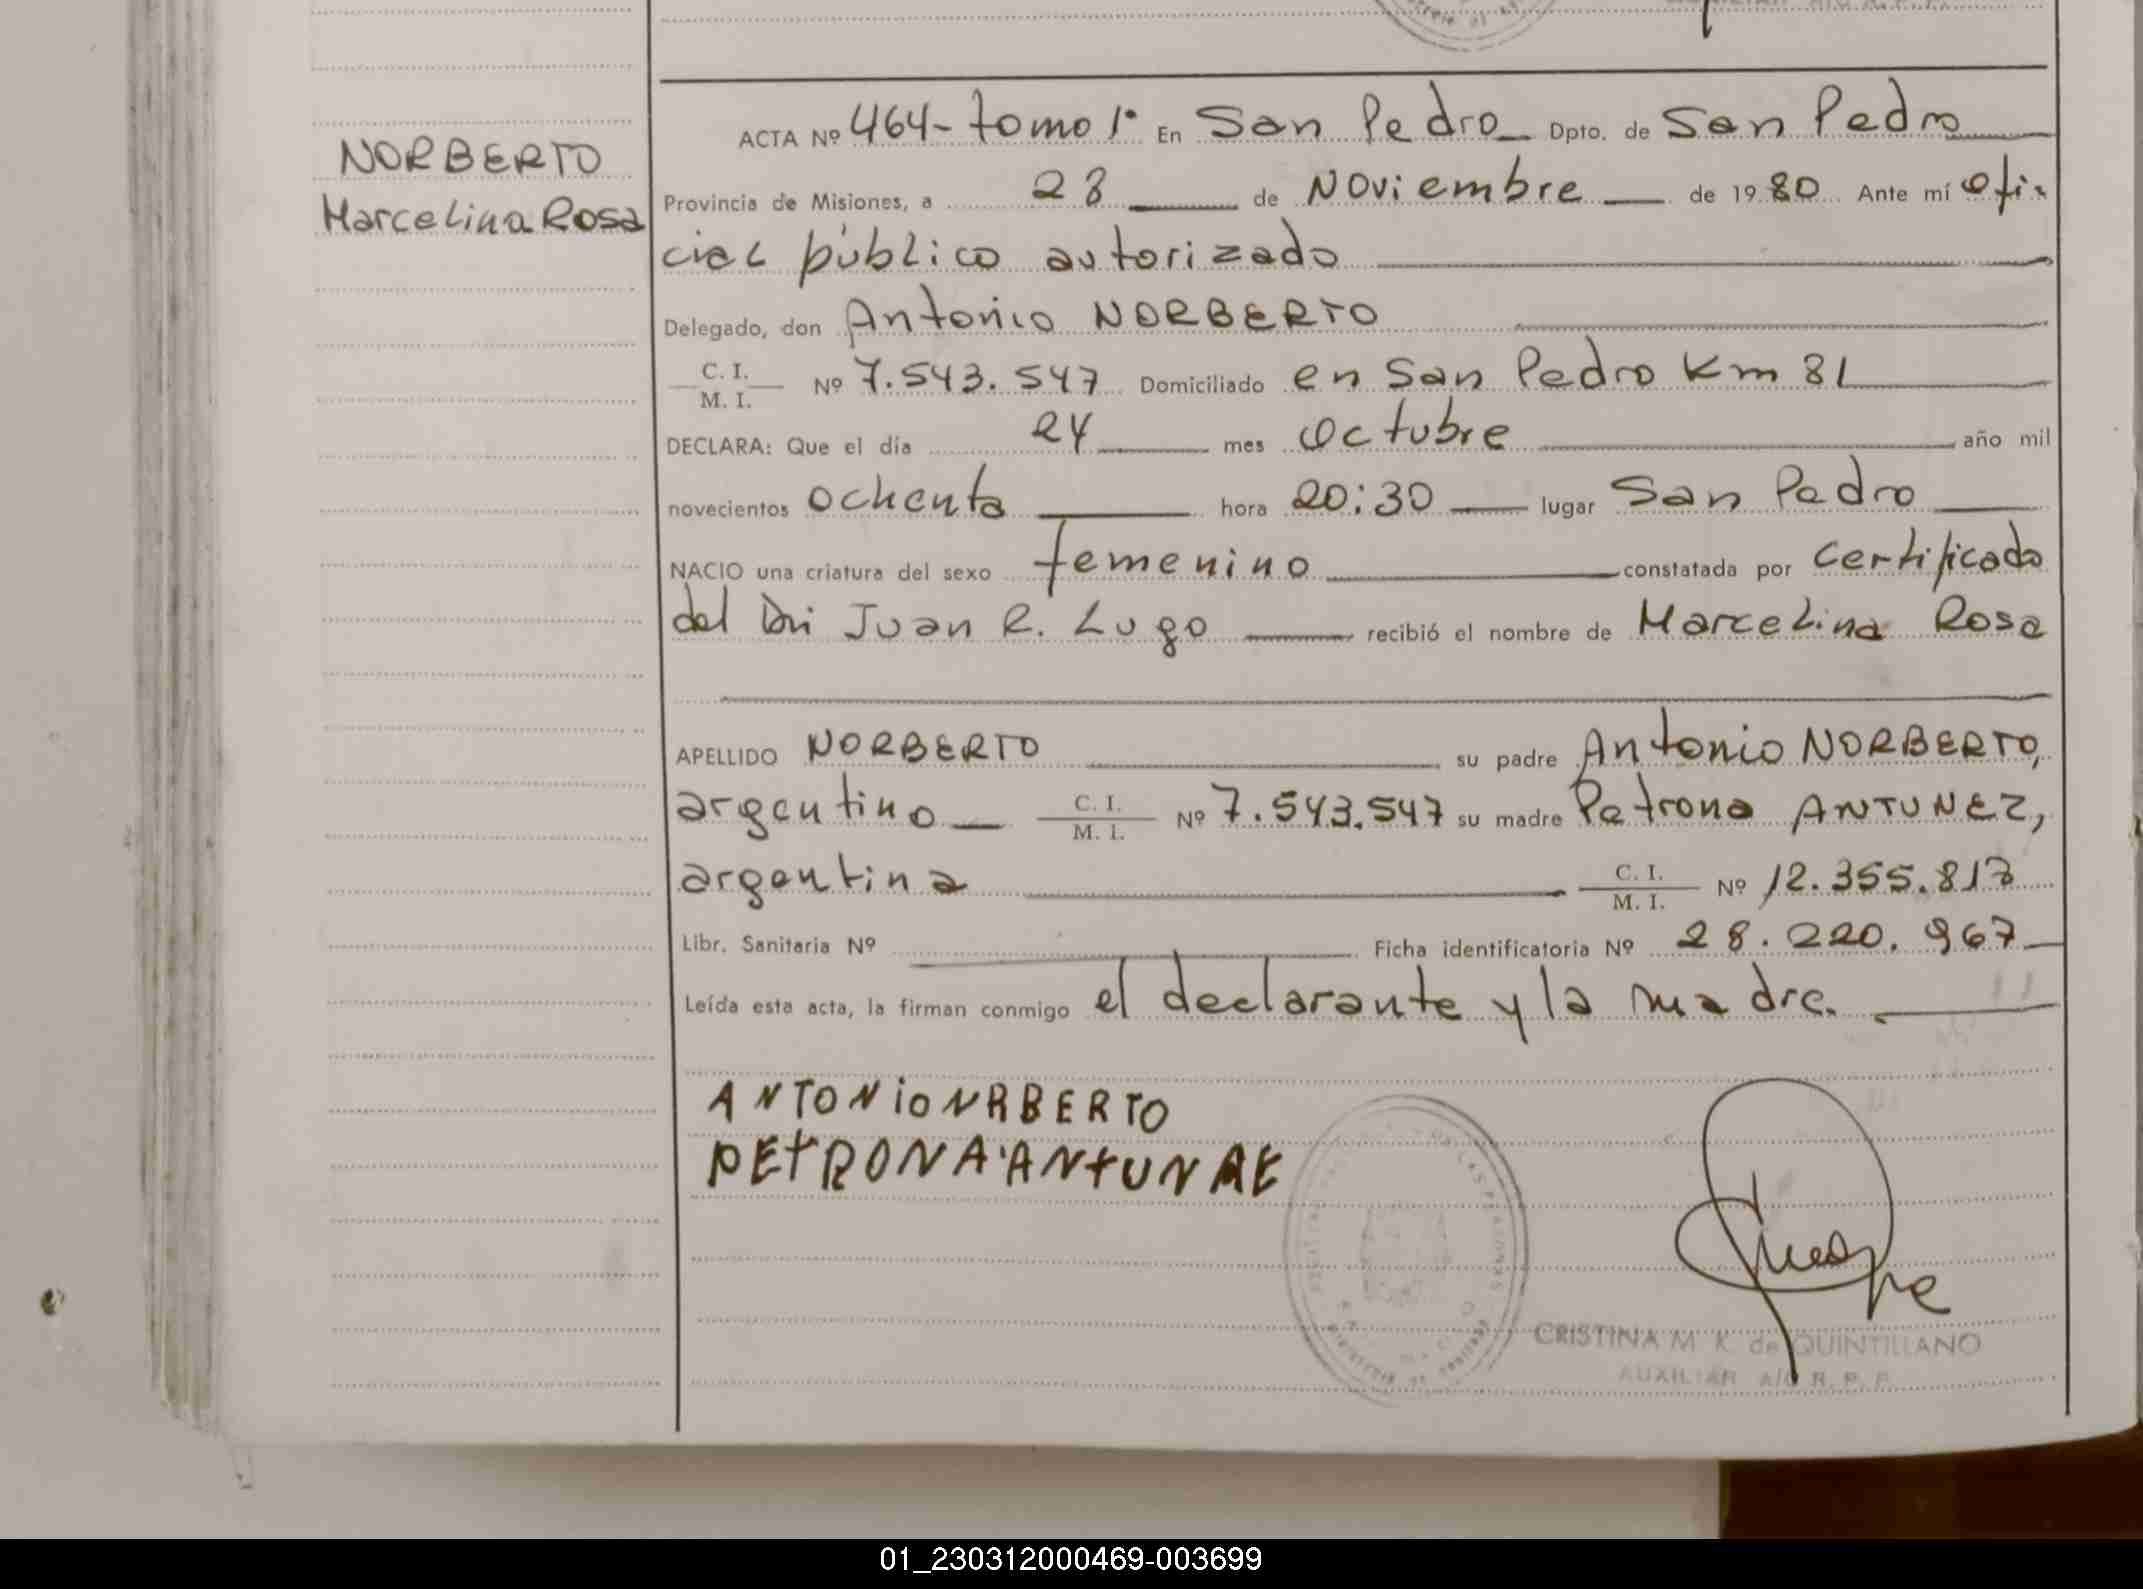 NORBERTO
Marcelina Rosa
ACTA Nº 464- tomo 1º En San Pedro Dpto. de San Pedro
Provincia de Misiones, a 28 de Noviembre de 1980 Ante mí ofi-
cial público autorizado
Delegado, don Antonio NORBERTO
C. I.
M. I. Nº 7.543.547 Domiciliado en San Pedro Km 81
DECLARA: Que el día 24 mes Octubre año mil
novecientos ochenta hora 20:30 lugar San Pedro
NACIO una criatura del sexo femenino constatada por certificado
del Juan R. Lugo recibió el nombre de Marcelina Rosa
APELLIDO NORBERTO su padre Antonio NORBERTO,
argentino C. I. M. I. Nº 7.543.547 su madre Petrona ANTUNEZ,
argentina C. I. M. I. Nº
Libr. Sanitaria Nº Ficha identificatoria Nº 28.220.967
Leída esta acta, la firman conmigo el declarante y la madre.
ANTONiO NRBERTO
PETRONA ANTUNAE
CRISTINA M. K. de QUINTILLANO
AUXILIAR A/C R. P. P.
01_230312000469-003699